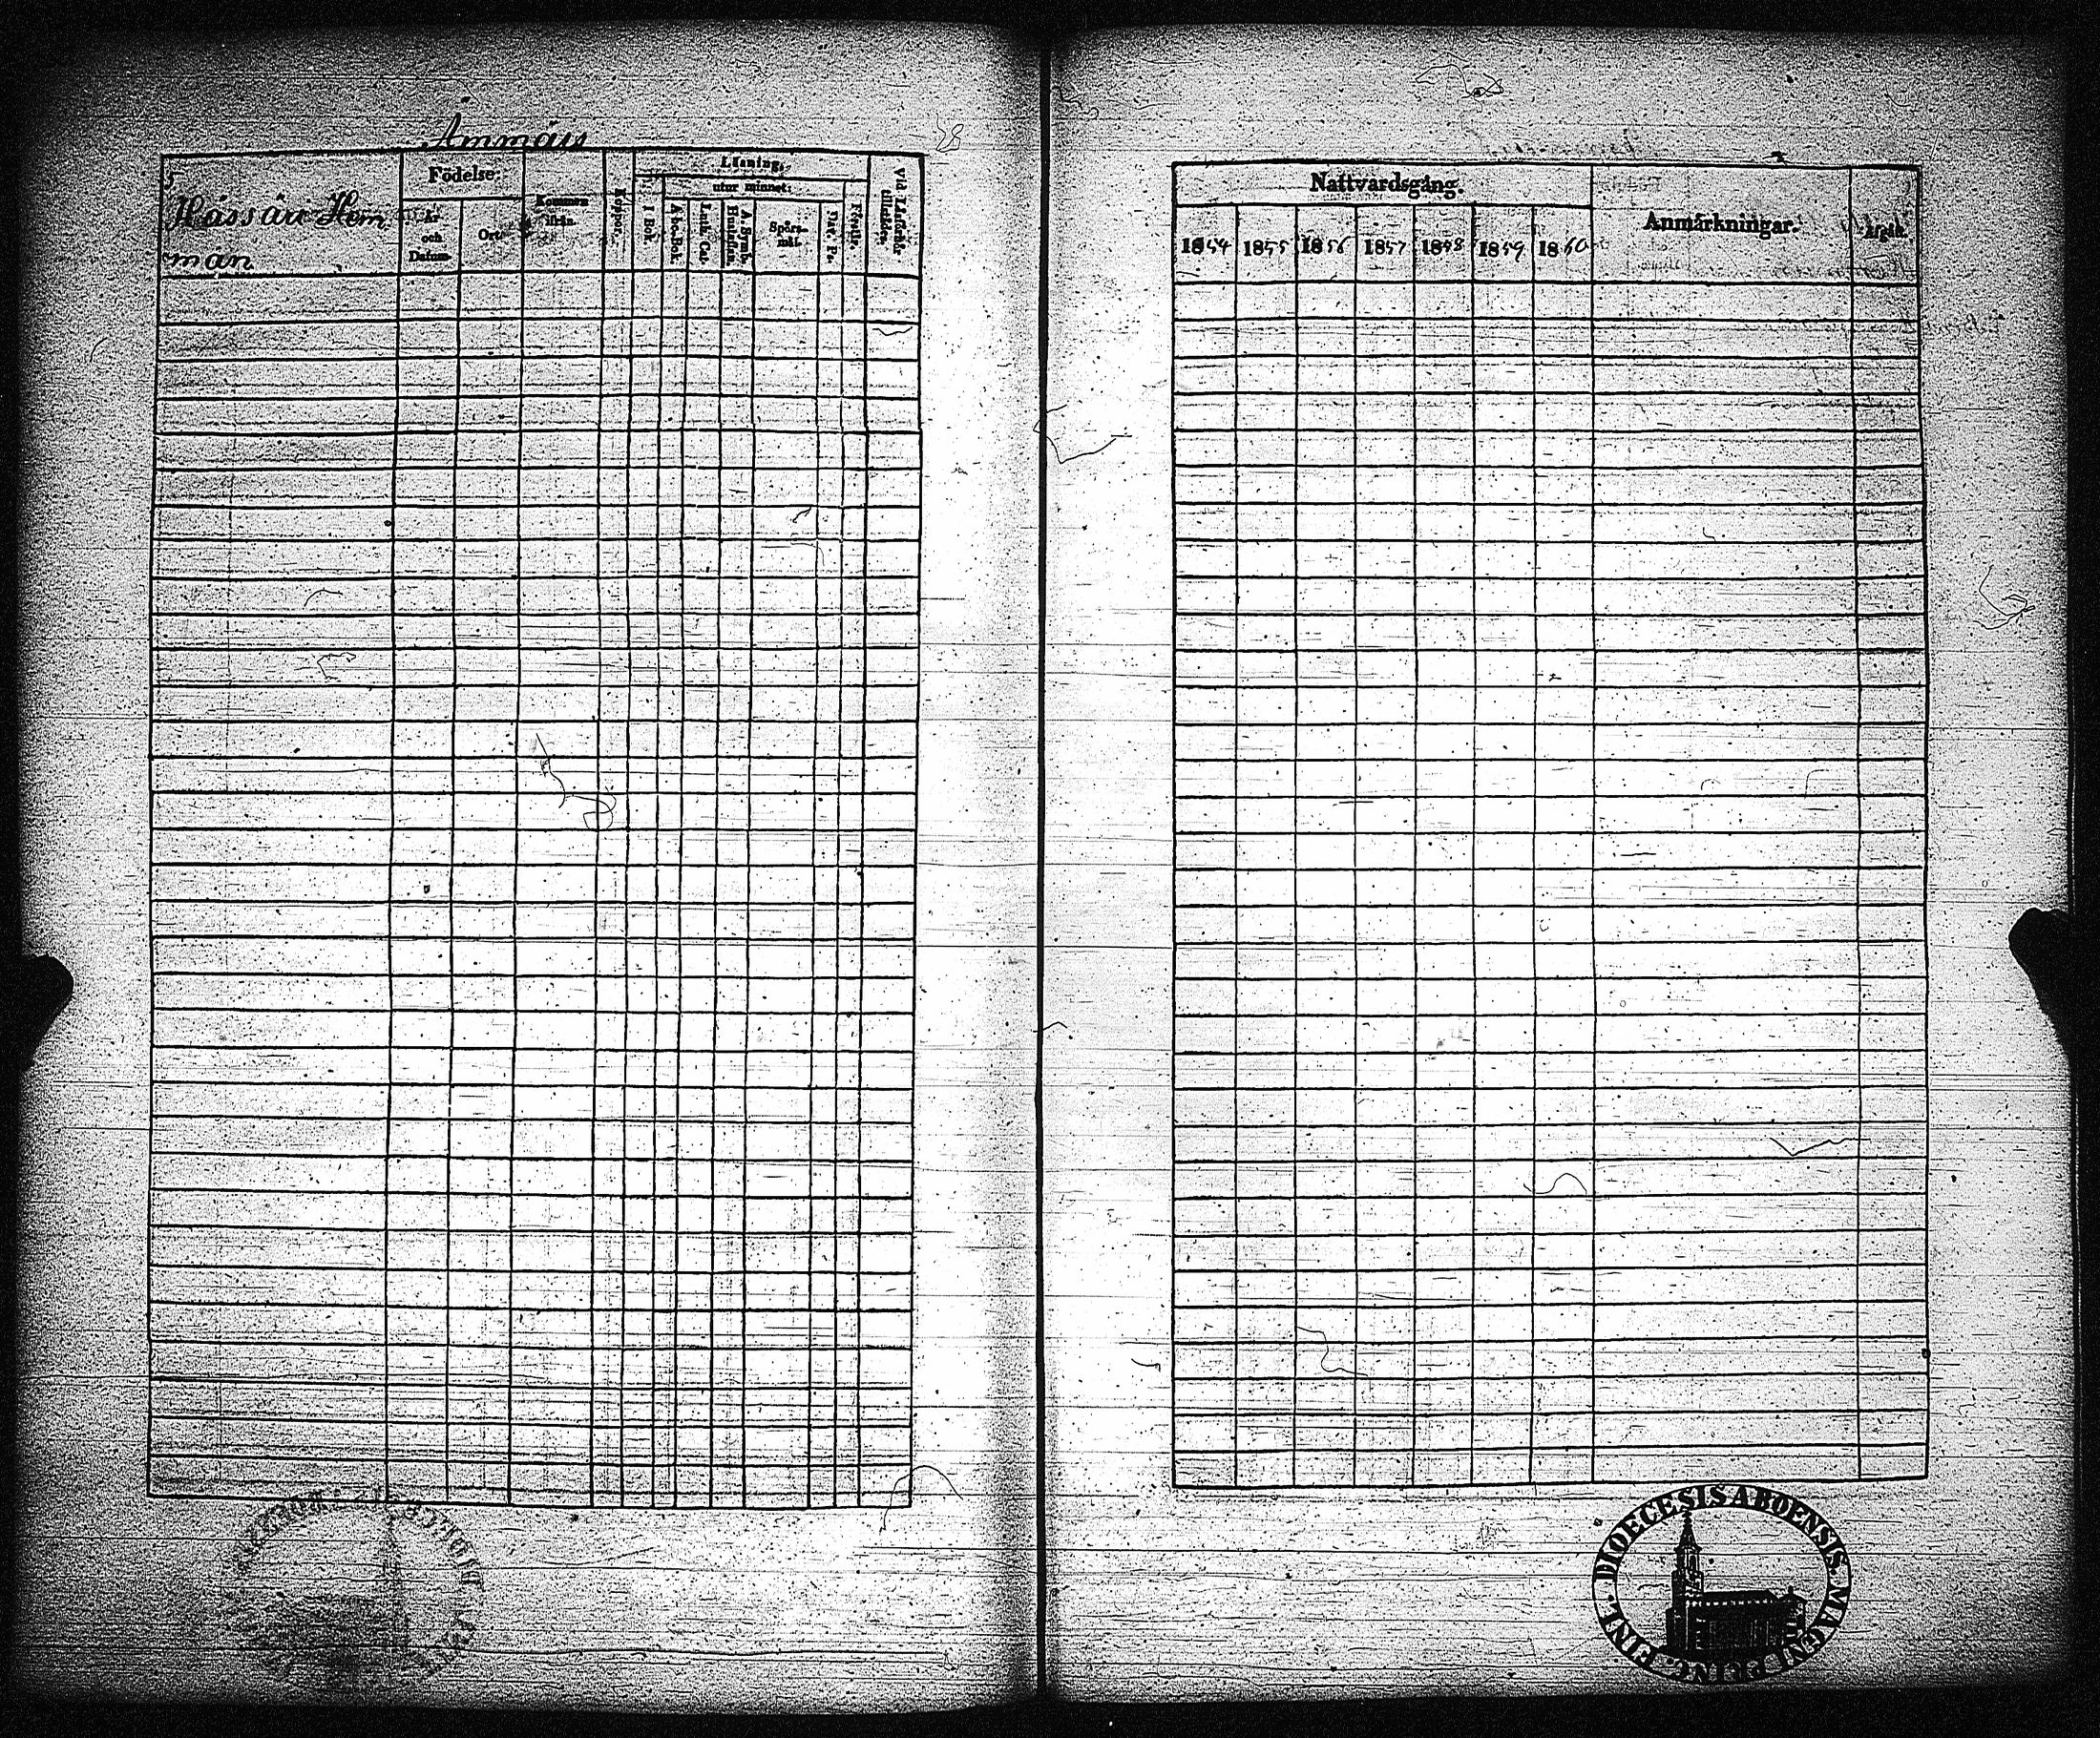 Ammäis
28
5
Hässärr Hem
män
Födelse:
År
och
Datum.
Ort.
Kommen
ifrån.
Koppor.
Läsning:
I Bok.
utur minnet:
A-b-c-Bok
Luth. Cat.
A. Symb.
Hustaflan.
Spörs-
mål.
Dav. Ps.
Förstår.
Vid Läsförhör
tillstädes.
Nattvardsgång.
1854
1855
1856
1857
1858
1859
1860
Anmärkningar.
Afgått.
DIOECESIS ABOENSIS. MAGNI PRINC. FINL.